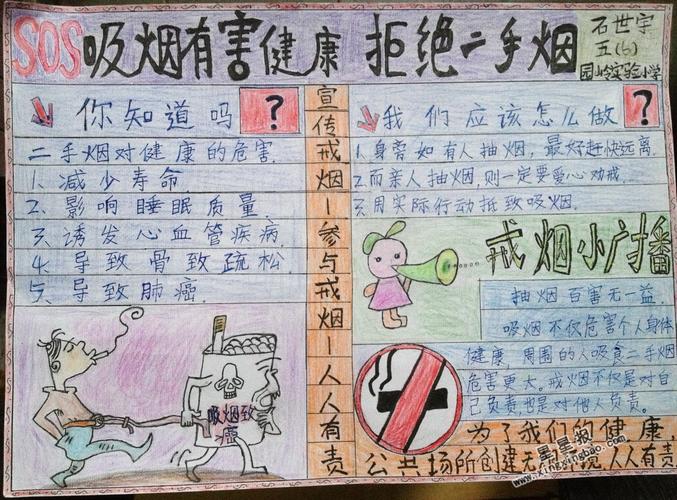 SOS吸烟有害健康 拒绝二手烟
石世宇
五(6)
园岭实验小学
你知道吗?
二手烟对健康的危害.
1.减少寿命.
2.影响睡眠质量.
3.诱发心血管疾病.
4.导致骨致疏松.
5.导致肺癌.
吸烟致
癌
宣传戒烟-参与戒烟-人人有责
我们应该怎么做?
1.身旁如有人抽烟,最好赶快远离.
2.而亲人抽烟,则一定要爱心劝戒.
3.用实际行动抵致吸烟.
戒烟小广播
抽烟百害无一益.
吸烟不仅危害个人身体
健康,周围的人吸食二手烟
危害更大。戒烟不仅是对自
己负责,也是对他人负责.
为了我们的健康,
公共场所创建无 境,人人有责
星星报
www.xingxingbao.com